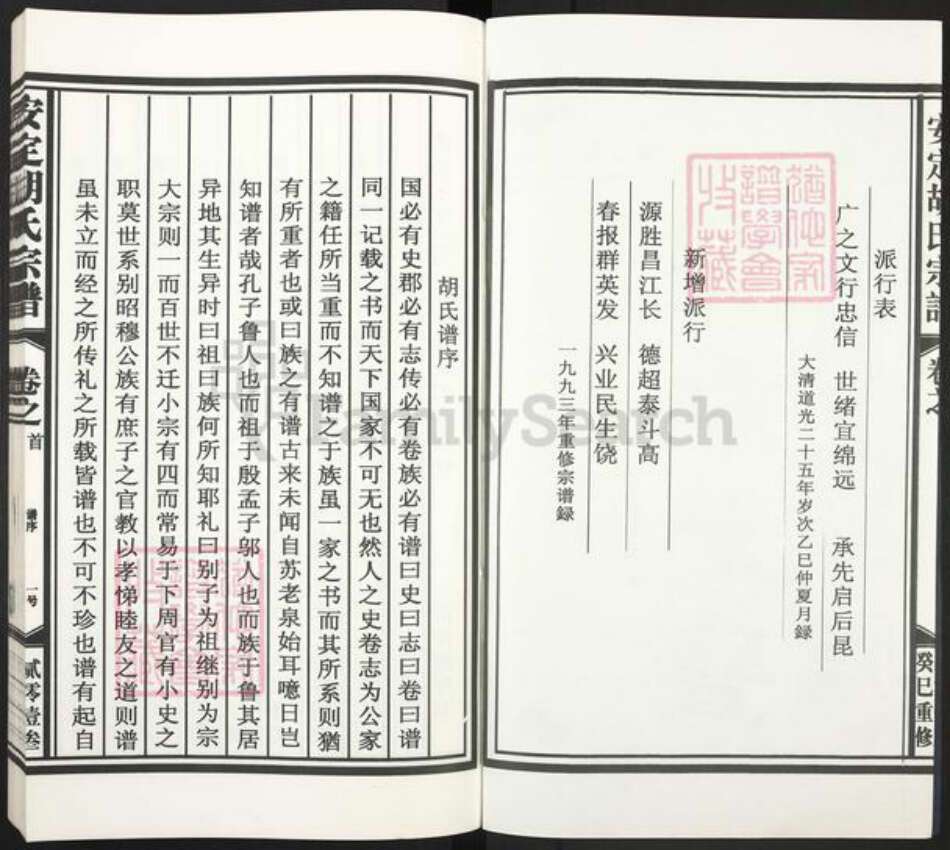 安定胡氏宗谱
卷之
癸巳重修
派行表
广之文行忠信 世绪宜绵远 承先启后昆
大清道光二十五年岁次乙巳仲夏月録
新增派行
源胜昌江长 德超泰斗高
春报群英发 兴业民生饶
一九九三年重修宗谱録
胡氏谱序
国必有史郡必有志传必有卷族必有谱曰史曰志曰卷曰谱
同一记载之书而天下国家不可无也然人之史卷志为公家
之籍任所当重而不知谱之于族虽一家之书而其所系则犹
有所重者也或曰族之有谱古来未闻自苏老泉始耳噫日岂
知谱者哉孔子鲁人也而祖于殷孟子邬人也而族于鲁其居
异地其生异时曰祖曰族何所知耶礼曰别子为祖继别为宗
大宗则一而百世不迁小宗有四而常易于下周官有小史之
职莫世系别昭穆公族有庶子之官教以孝悌睦友之道则谱
虽未立而经之所传礼之所载皆谱也不可不珍也谱有起自
安定胡氏宗谱
卷之首
谱序
一号
贰零壹叁
FamilySearch